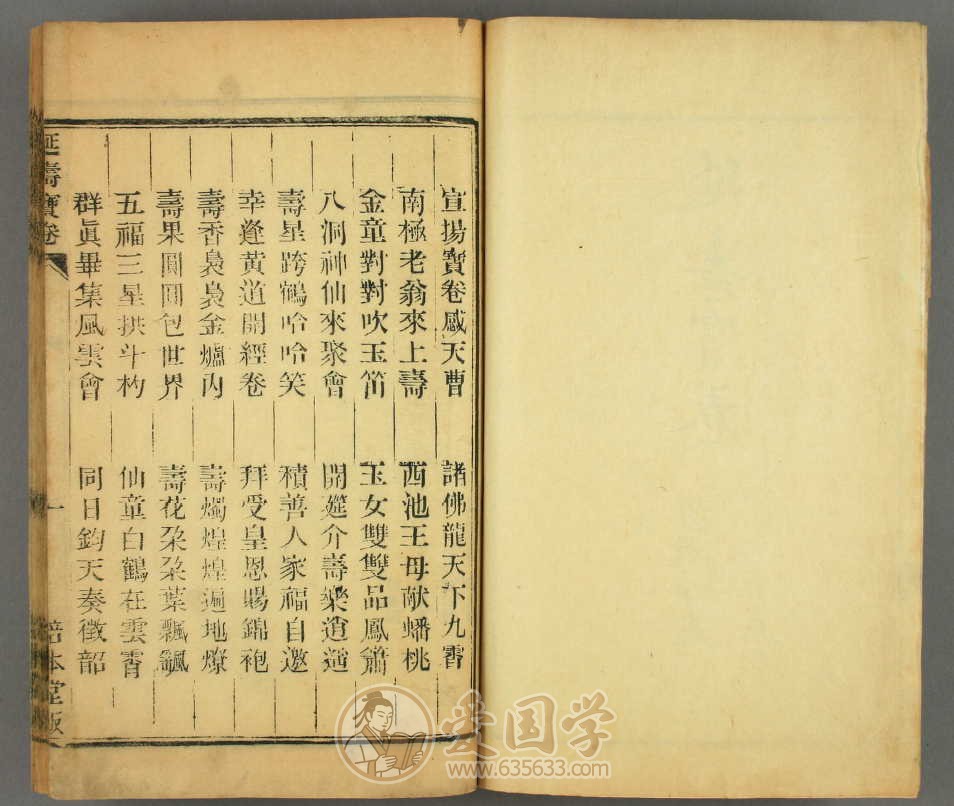 宣揚寶卷感天曹　諸佛龍天下九霄
南極老翁來上壽　西池王母献蟠桃
金童對對吹玉笛　玉女雙雙品鳳簫
八洞神仙來聚會　開筵介壽樂逍遥
壽星跨鶴哈哈笑　積善人家福自邀
幸逢黄道開經卷　拜受皇恩賜錦袍
壽香裊裊金爐内　壽燭煌煌遍地燎
壽果圓圓包世界　壽花朶朶葉飄飄
五福三星拱斗杓　仙童白鶴在雲霄
群眞畢集風雲會　同日鈞天奏徵韶
延壽寶卷　一　培本堂版
爱国学
www.635633.com